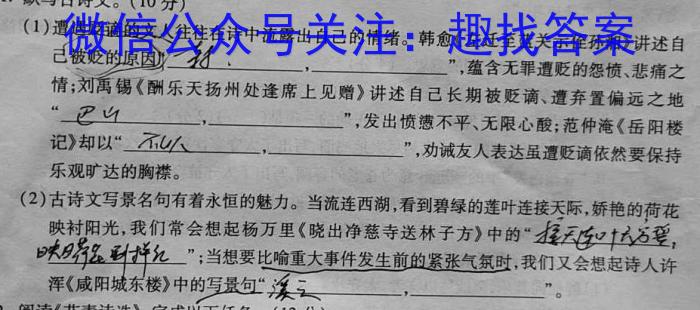 默写古诗文。(10分)
微信公众号关注：趣找答案
(1)遭遇贬谪的文人往往在诗中流露出自己的情绪。韩愈《左迁至蓝关示侄孙湘》讲述自
己被贬的原因“一封，”,蕴含无罪遭贬的怨愤、悲痛之
情;刘禹锡《酬乐天扬州处逢席上见赠》讲述自己长期被贬谪、遭弃置偏远之地
“巴山，”,发出愤懑不平、无限心酸;范仲淹《岳阳楼
记》却以“不以，”,劝诫友人表达虽遭贬谪依然要保持
乐观旷达的胸襟。
(2)古诗文写景名句有着永恒的魅力。当流连西湖,看到碧绿的莲叶连接天际,娇艳的荷花
映衬阳光,我们常会想起杨万里《晓出净慈寺送林子方》中的“接天莲叶无穷碧,
映日荷花别样红”;当想要比喻重大事件发生前的紧张气氛时,我们又会想起诗人许
浑《咸阳城东楼》中的写景句“溪云，”。